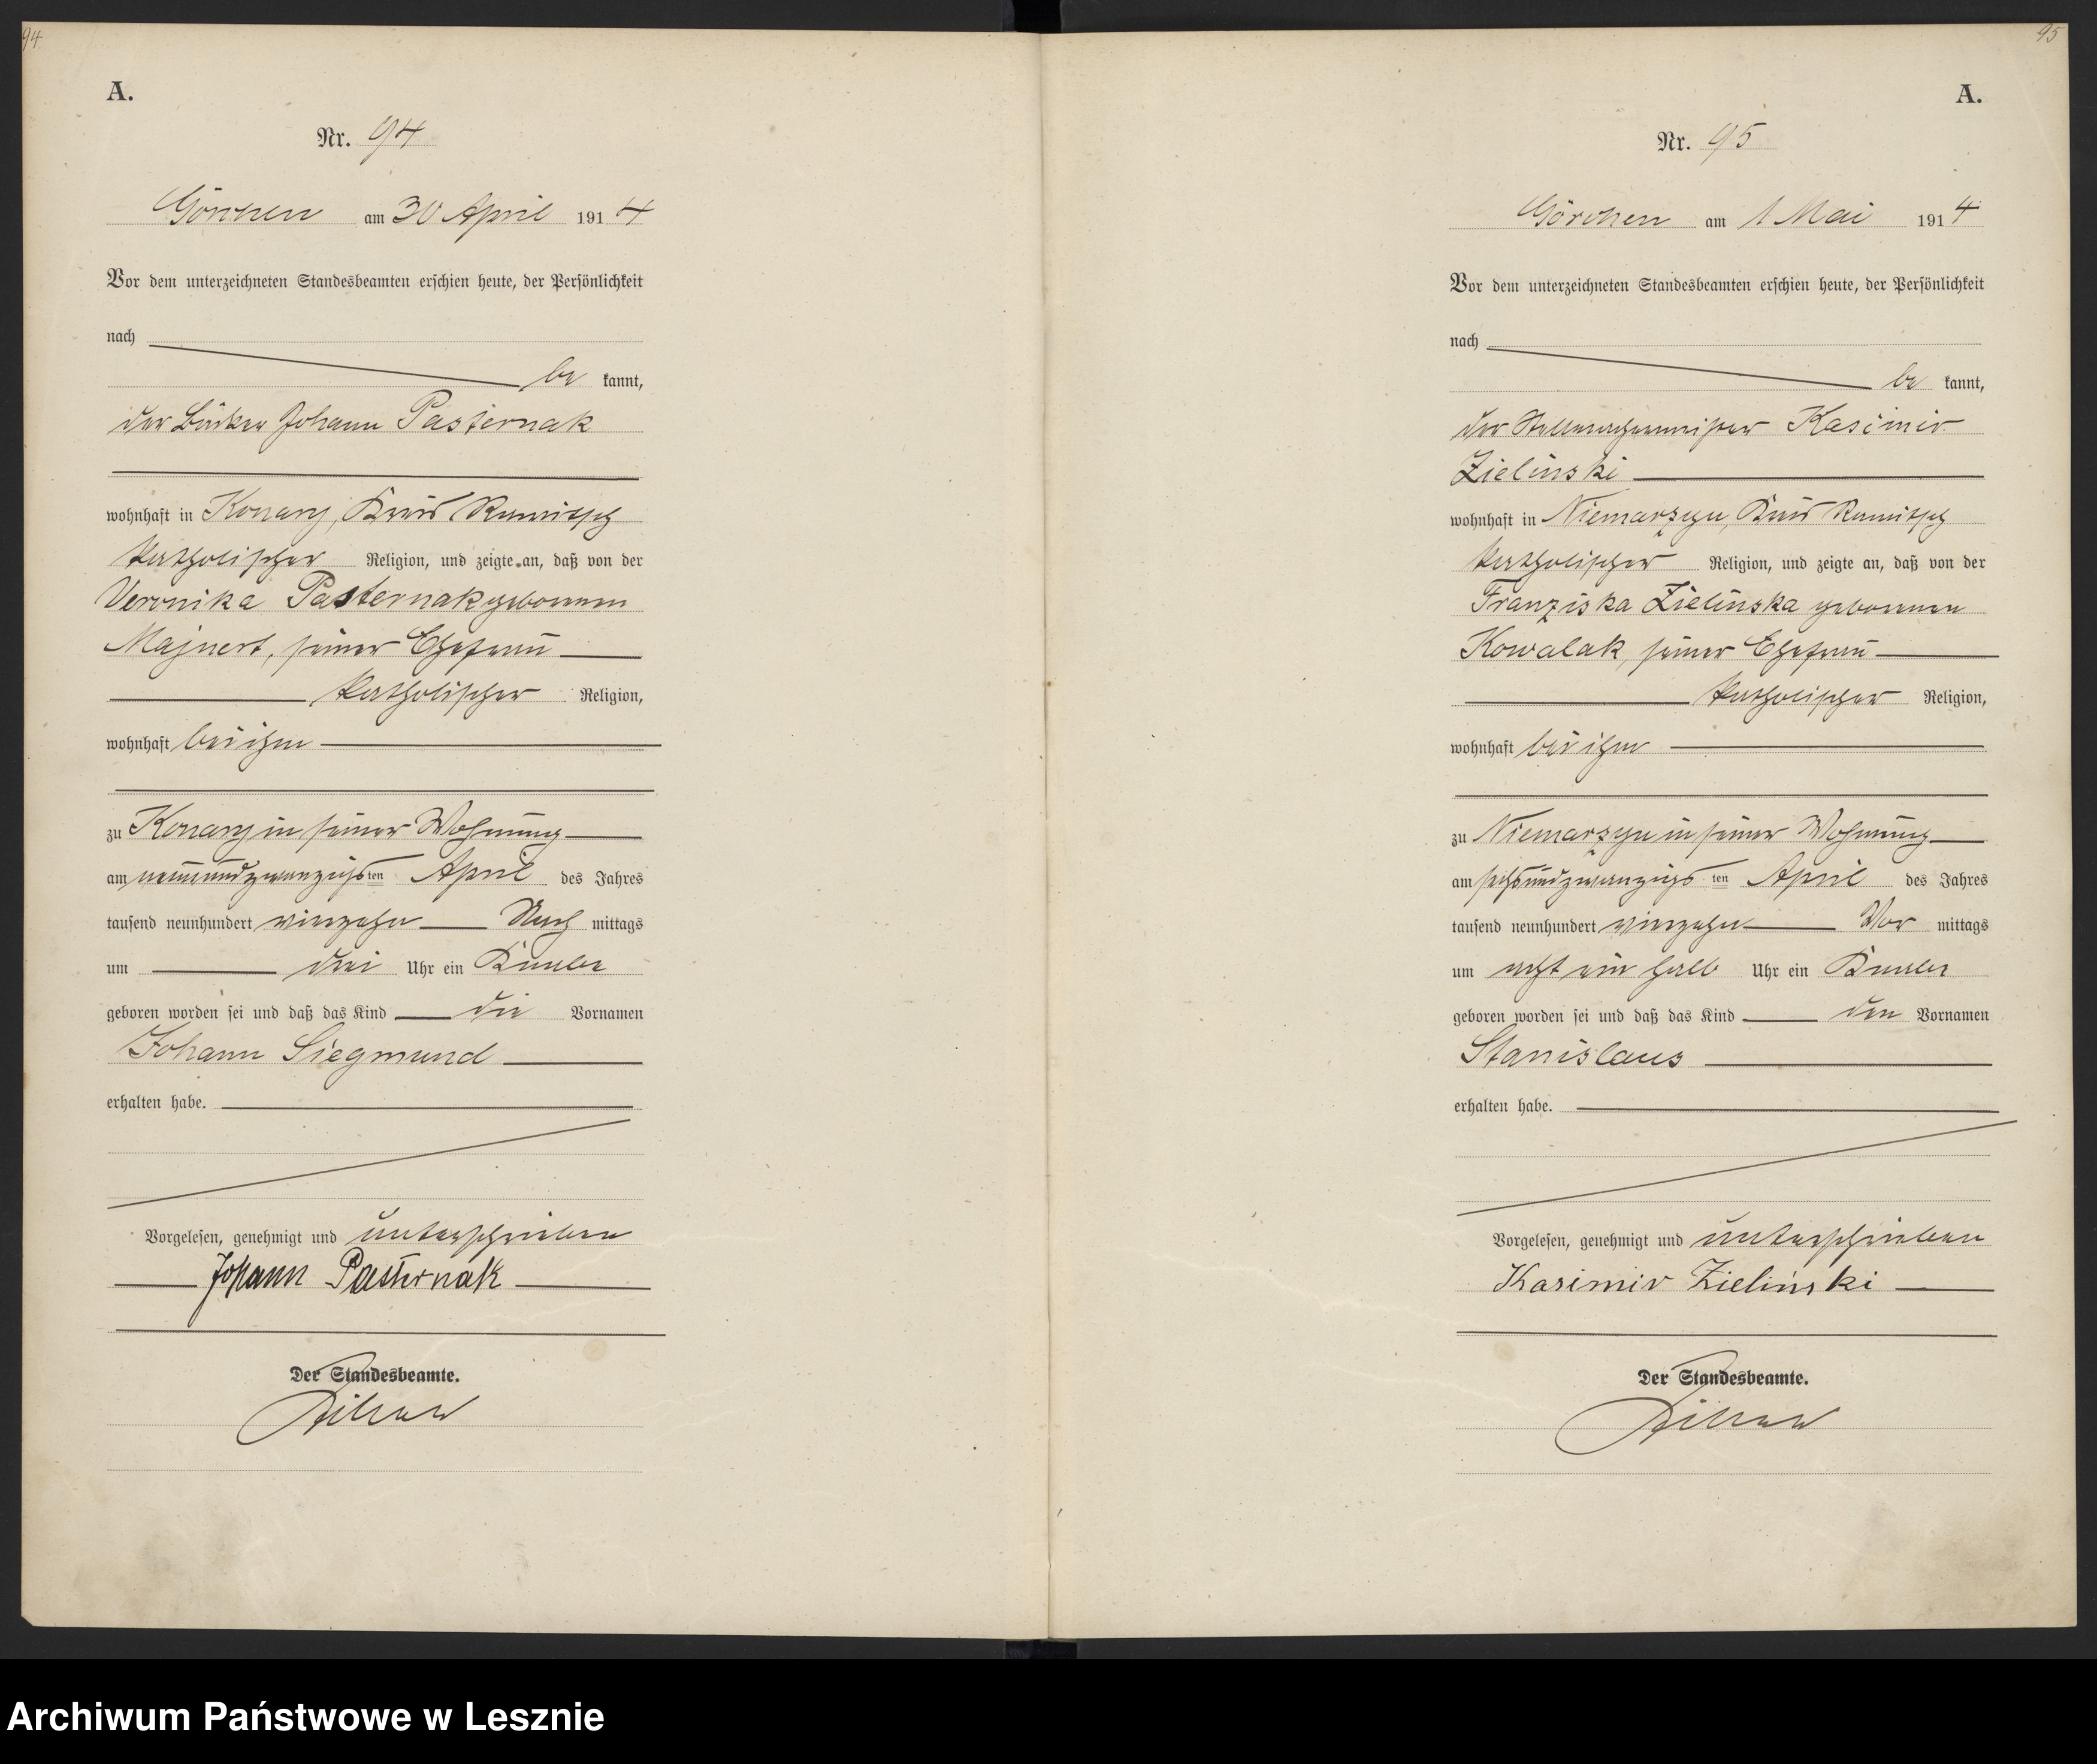 94
A.
Nr. 94
Görchen am 30 April 1914
Vor dem unterzeichneten Standesbeamten erschien heute, der Persönlichkeit
nach
be kannt,
der Bäcker Johann Pasternak
wohnhaft in Konary, Kreis Rawitsch
katholischer Religion, und zeigte an, daß von der
Veronika Pasternak geborenen
Majnert, seiner Ehefrau
katholischer Religion,
wohnhaft bei ihm
zu Konary in seiner Wohnung
am neunundzwanzigsten April des Jahres
tausend neunhundert vierzehn Nach mittags
um drei Uhr ein Knabe
geboren worden sei und daß das Kind die Vornamen
Johann Siegmund
erhalten habe.
Vorgelesen, genehmigt und unterschrieben
Johann Pasternak
Der Standesbeamte.
95
A.
Nr. 95
Görchen am 1 Mai 1914
Vor dem unterzeichneten Standesbeamten erschien heute, der Persönlichkeit
nach
be kannt,
der Stellmachermeister Kasimir
Zielinski
wohnhaft in Niemarzyn, Kreis Rawitsch
katholischer Religion, und zeigte an, daß von der
Franziska Zielinska geborenen
Kowalak, seiner Ehefrau
katholischer Religion,
wohnhaft bei ihm
zu Niemarzyn in seiner Wohnung
am sechsundzwanzigsten April des Jahres
tausend neunhundert vierzehn Vor mittags
um acht ein halb Uhr ein Knabe
geboren worden sei und daß das Kind den Vornamen
Stanislaus
erhalten habe.
Vorgelesen, genehmigt und unterschrieben
Kasimir Zielinski
Der Standesbeamte.
Archiwum Państwowe w Lesznie